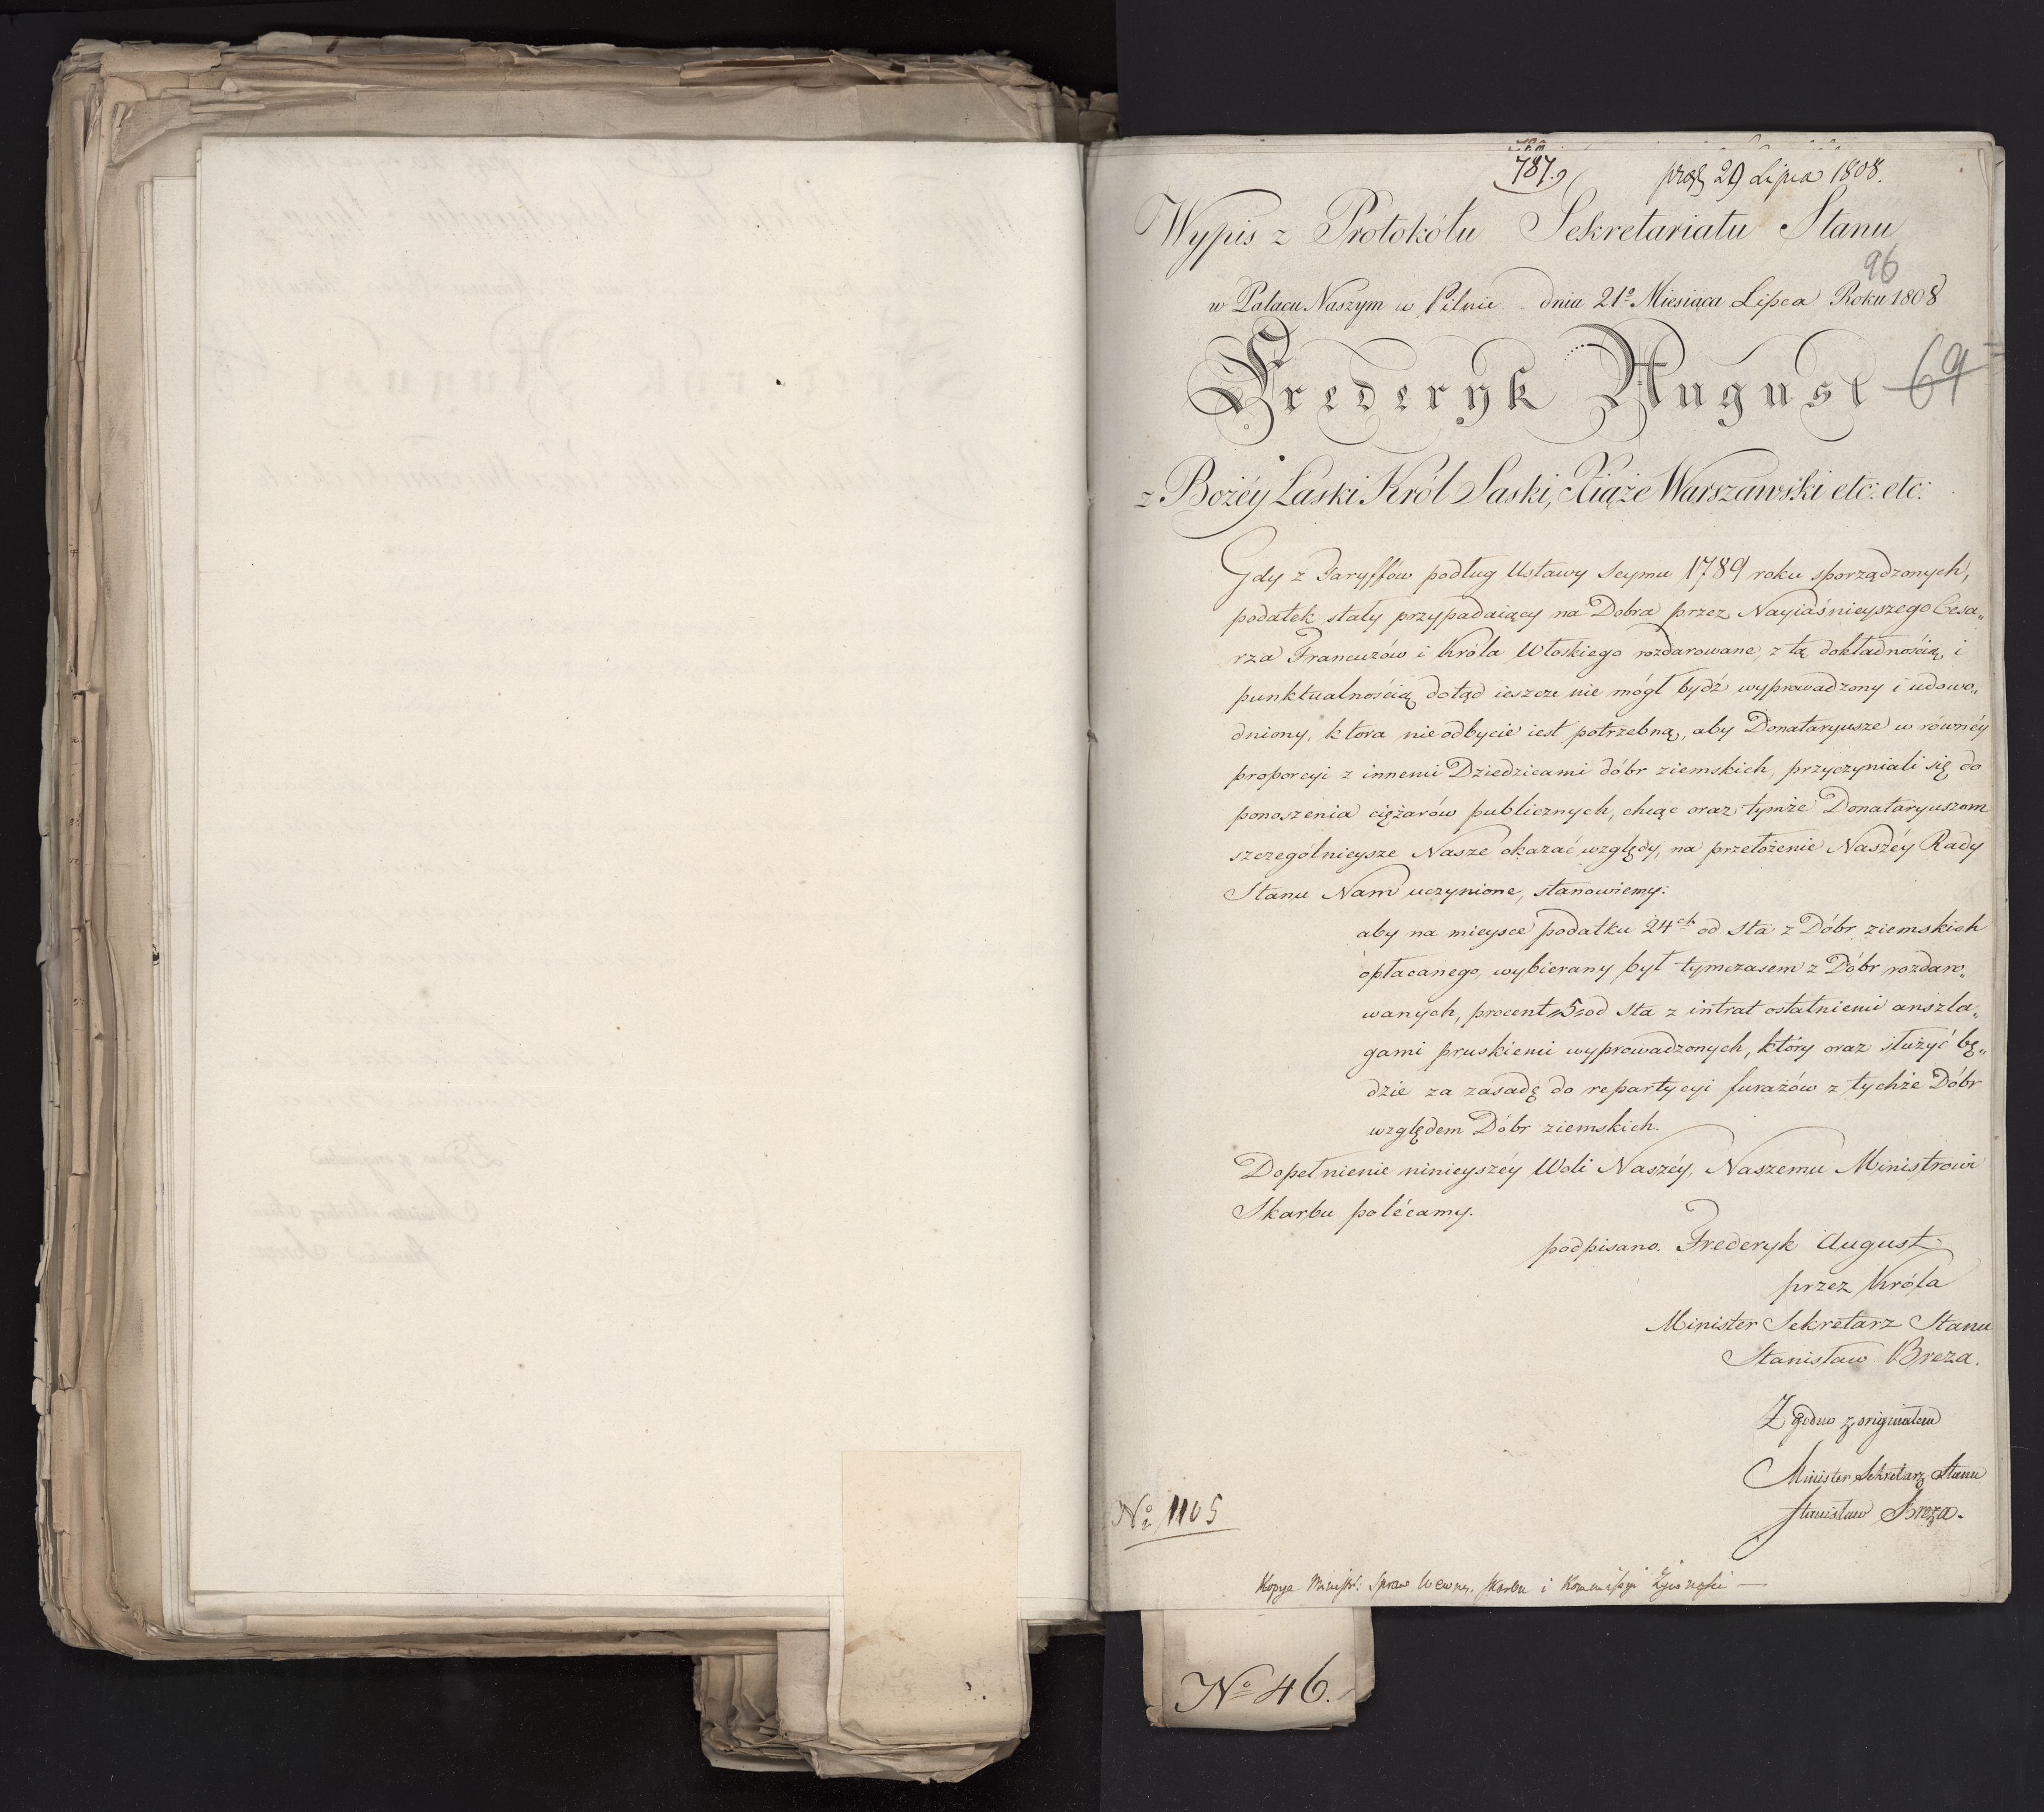 787.
29 Lipca 1808.
Wypis z Protokółu Sekretariatu Stanu
96
w Pałacu Naszym w Pilnic dnia 21º Miesiąca Lipca Roku 1808
Frederyk August
69
z Bożéy Łaski Król Saski, Xiąże Warszawski etc: etc:
Gdy z Taryffów podług Ustawy Seymu 1789 roku sporządzonych,
podatek stały przypadaiący na Dobra przez Nayiaśnieyszego Cesa„
rza Francuzów i Króla Włoskiego rozdarowane, z tą dokładnością i
punktualnością dotąd ieszcze nie mógł bydź wyprowadzony i udowo„
dniony, ktora nieodbycie iest potrzebną, aby Donataryusze w równéy
proporcyi z innemi Dziedzicami dóbr ziemskich, przyczyniali się do
ponoszenia ciężarów publicznych, chcąc oraz tymże Donataryuszom
szczególnieysze Nasze okazać względy, na przełożenie Naszéy Rady
Stanu Nam uczynione, stanowiemy:
aby na mieysce podatku 24ch od sta z Dóbr ziemskich
opłacanego, wybierany był tymczasem z Dóbr rozdaro„
wanych, procent 5 od sta z intrat ostatniemi anszla„
gami pruskiemi wyprowadzonych, który oraz służyć bę„
dzie za zasadę do repartycyi furażów z tychże Dóbr
względem Dóbr ziemskich.
Dopełnienie ninieyszéy Woli Naszéy, Naszemu Ministrowi
Skarbu polécamy.
podpisano. Frederyk August
przez Króla
Minister Sekretarz Stanu
Stanisław Breza.
Zgodno z originałem
Minister Sekretarz Stanu
Stanisław Breza.
Nº 1105
Kopya Ministr: Spraw Wewnę. Skarbu i Kommissyi Żywności —
Nº 46.